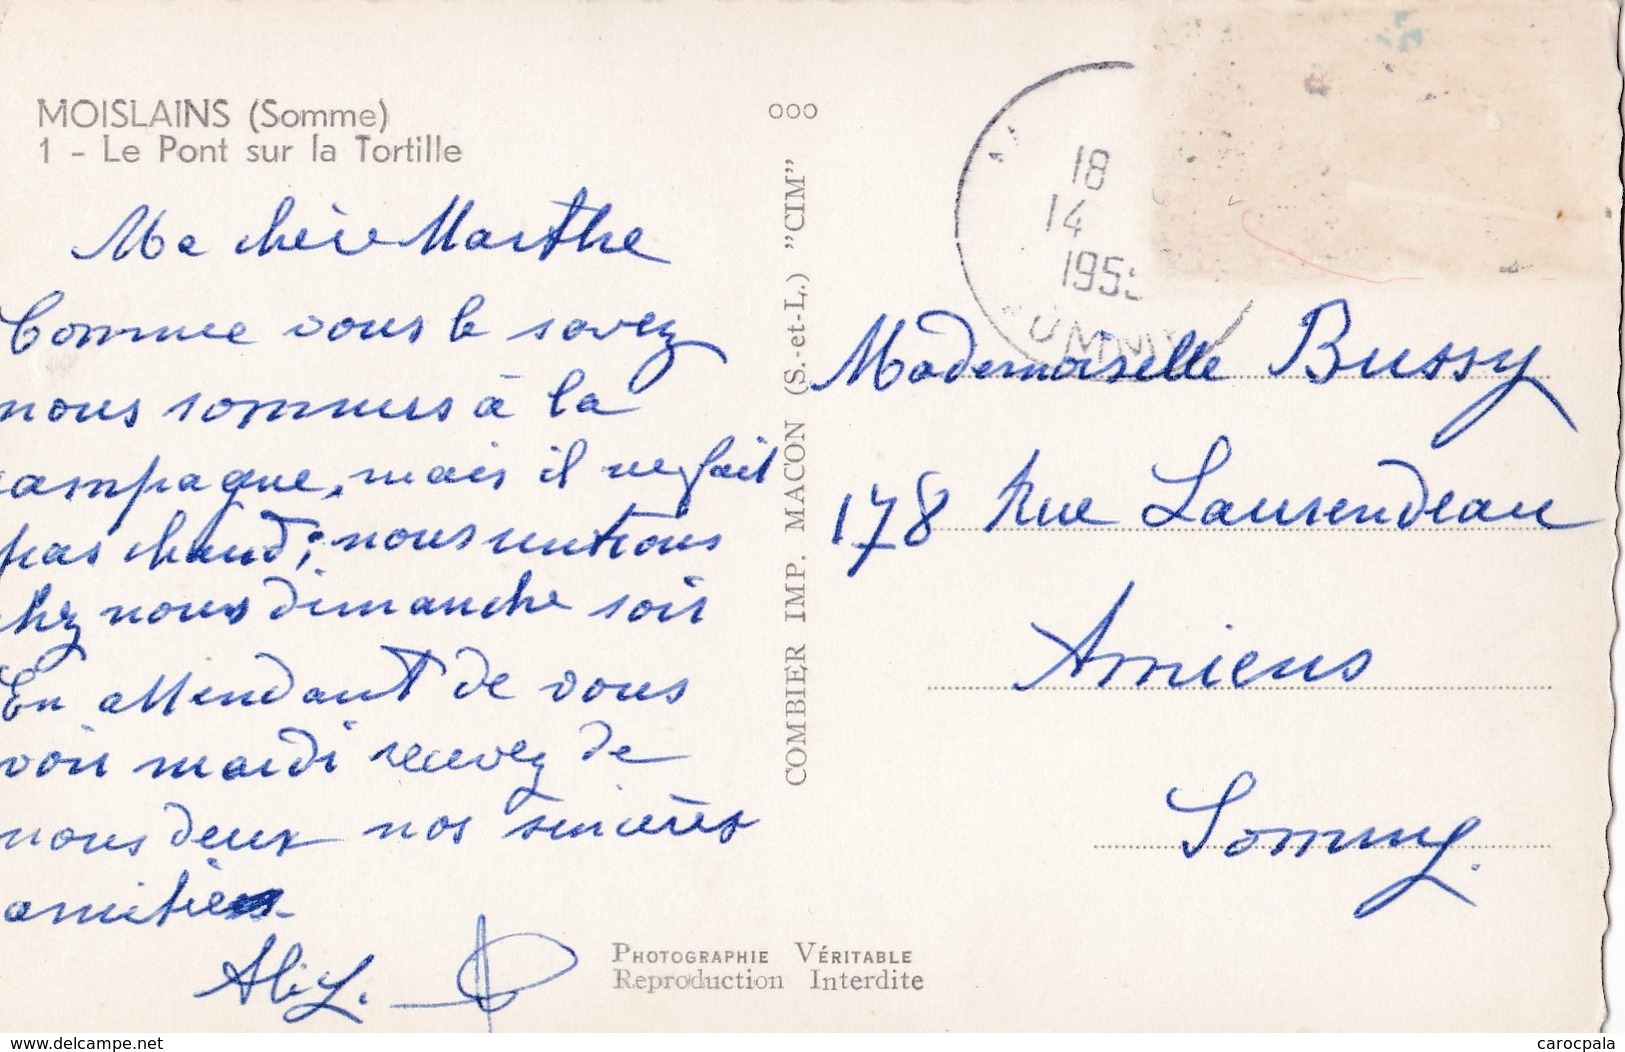 MOISLAINS (Somme)
1 - Le Pont sur la Tortille
Ma chère Marthe
Comme vous le savez
nous sommes à la
campagne, mais il ne fait
pas chaud; nous rentrons
chez nous dimanche soir
En attendant de vous
voir mardi recevez de
nous deux nos sincères
amitiés
ooo
COMBIER IMP. MACON (S.-et-L.) "CIM"
18
14
195
Mademoiselle Bussy
178 Rue Laurendeau
Amiens
Somme.
PHOTOGRAPHIE VÉRITABLE
Reproduction Interdite
www.delcampe.net
carocpala